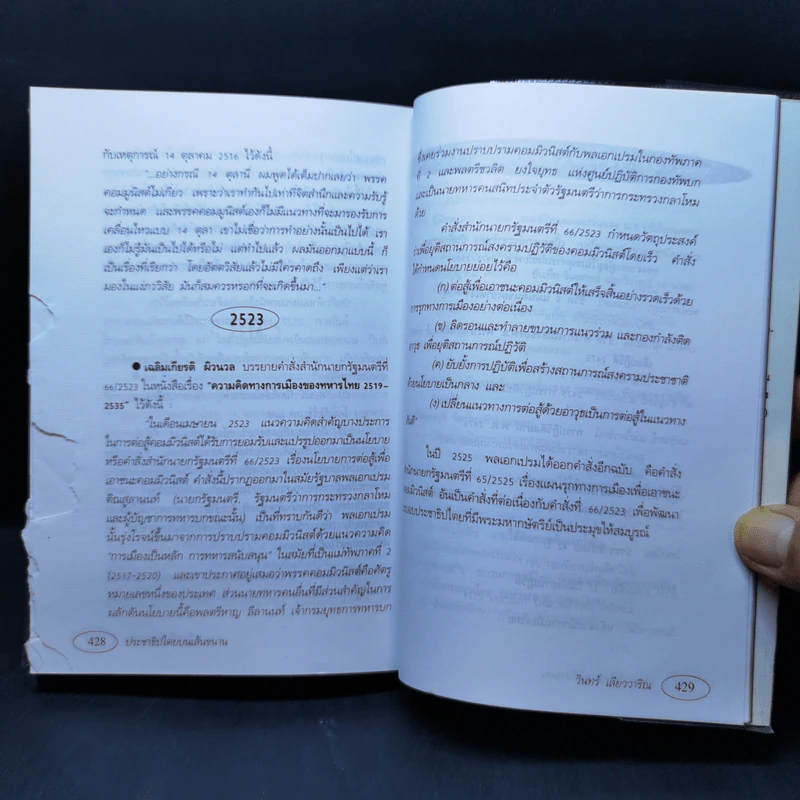 กับเหตุการณ์ 14 ตุลาคม 2516 ไว้ดังนี้
"...อย่างกรณี 14 ตุลานี่ ผมพูดได้เต็มปากเลยว่า พรรค
คอมมูนิสต์ไม่เกี่ยว เพราะว่าเราทำกันไปเท่าที่จิตสำนึกและความรับรู้
จะกำหนด และพรรคคอมมูนิสต์เองก็ไม่มีแนวทางที่จะมารองรับการ
เคลื่อนไหวแบบ 14 ตุลา เขาไม่เชื่อว่าการทำอย่างนั้นเป็นไปได้ เรา
เองก็ไม่รู้มันเป็นไปได้หรือไม่ แต่ทำไปแล้ว ผลมันออกมาแบบนี้ ก็
เป็นเรื่องที่เรียกว่า โดยอัตตวิสัยแล้วไม่มีใครคาดถึง เพียงแต่ว่าเรา
มองในแง่ภาววิสัย มันก็สมควรหรอกที่จะเกิดขึ้นมา..."
2523
● เฉลิมเกียรติ ผิวนวล บรรยายคำสั่งสำนักนายกรัฐมนตรีที่
66/2523 ในหนังสือเรื่อง "ความคิดทางการเมืองของทหารไทย 2519-
2535" ไว้ดังนี้
"ในเดือนเมษายน 2523 แนวความคิดสำคัญบางประการ
ในการต่อสู้คอมมิวนิสต์ได้รับการยอมรับและแปรรูปออกมาเป็นนโยบาย
หรือคำสั่งสำนักนายกรัฐมนตรีที่ 66/2523 เรื่องนโยบายการต่อสู้เพื่อ
เอาชนะคอมมิวนิสต์ คำสั่งนี้ปรากฏออกมาในสมัยรัฐบาลพลเอกเปรม
ติณสูลานนท์ (นายกรัฐมนตรี, รัฐมนตรีว่าการกระทรวงกลาโหม
และผู้บัญชาการทหารบกขณะนั้น) เป็นที่ทราบกันดีว่า พลเอกเปรม
นั้นรุ่งโรจน์ขึ้นมาจากการปราบปรามคอมมิวนิสต์ด้วยแนวความคิด
"การเมืองเป็นหลัก การทหารสนับสนุน" ในสมัยที่เป็นแม่ทัพภาคที่ 2
(2517-2520) และเขาประกาศอยู่เสมอว่าพรรคคอมมิวนิสต์คือศัตรู
หมายเลขหนึ่งของประเทศ ส่วนนายทหารคนอื่นที่มีส่วนสำคัญในการ
ผลักดันนโยบายนี้คือพลตรีหาญ ลีลานนท์ เจ้ากรมยุทธการทหารบก
428 ประชาธิปไตยบนเส้นขนาน
ซึ่งเคยร่วมงานปราบปรามคอมมิวนิสต์กับพลเอกเปรมในกองทัพภาค
ที่ 2 และพลตรีชวลิต ยงใจยุทธ แห่งศูนย์ปฏิบัติการกองทัพบก
และเป็นนายทหารคนสนิทประจำตัวรัฐมนตรีว่าการกระทรวงกลาโหม
ด้วย
คำสั่งสำนักนายกรัฐมนตรีที่ 66/2523 กำหนดวัตถุประสงค์
ว่าเพื่อยุติสถานการณ์สงครามปฏิวัติของคอมมิวนิสต์โดยเร็ว คำสั่ง
ได้กำหนดนโยบายย่อยไว้คือ
(ก) ต่อสู้เพื่อเอาชนะคอมมิวนิสต์ให้เสร็จสิ้นอย่างรวดเร็วด้วย
การรุกทางการเมืองอย่างต่อเนื่อง
(ข) ลิดรอนและทำลายขบวนการแนวร่วม และกองกำลังติด
าวุธ เพื่อยุติสถานการณ์ปฏิวัติ
(ค) ยับยั้งการปฏิบัติเพื่อสร้างสถานการณ์สงครามประชาชาติ
ด้วยนโยบายเป็นกลาง และ
(ง) เปลี่ยนแนวทางการต่อสู้ด้วยอาวุธเป็นการต่อสู้ในแนวทาง
ันติ"
ในปี 2525 พลเอกเปรมได้ออกคำสั่งอีกฉบับ คือคำสั่ง
สำนักนายกรัฐมนตรีที่ 65/2525 เรื่องแผนรุกทางการเมืองเพื่อเอาชนะ
คอมมิวนิสต์ อันเป็นคำสั่งที่ต่อเนื่องกับคำสั่งที่ 66/2523 เพื่อพัฒนา
ระบอบประชาธิปไตยที่มีพระมหากษัตริย์เป็นประมุขให้สมบูรณ์
วินทร์ เลียววาริณ 429